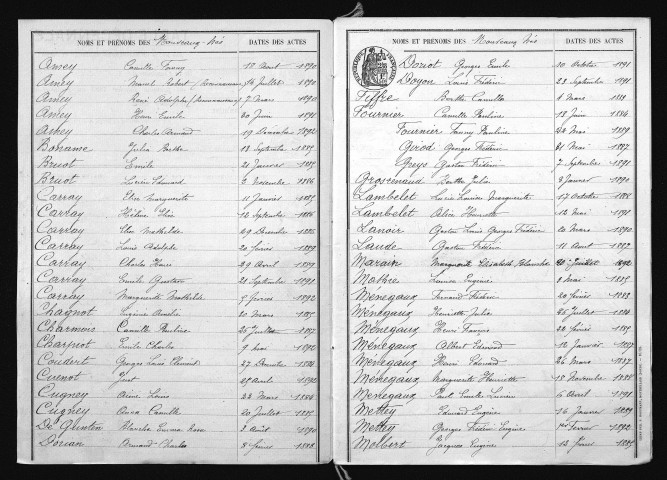 NOMS ET PRÉNOMS DES Nouveaux-Nés DATES DES ACTES
Amey Camille Fanny 18 Août 1890
Amey Marcel Robert ( 14 Juillet 1890
Amey René Adolphe ( 7 Mars 1890
Amey Henri Emile 30 Juin 1891
Amey Charles Armand 19 Décembre 1892
Boname Julia Berthe 13 Septembre 1885
Bruot Emile 21 Janvier 1885
Bruot Lucien Edouard 6 Novembre 1886
Carray Elise Marguerite 11 Janvier 1885
Carray Hélène Elise 12 Septembre 1886
Carray Elise Mathilde 29 Décembre 1886
Carray Louis Adolphe 20 Février 1889
Carray Charles Henri 29 Avril 1889
Carray Emile Gustave 21 Septembre 1890
Carray Marguerite Mathilde 9 Février 1892
Chagnot Eugénie Amélie 20 Mars 1885
Charmons Camille Pauline 25 Juillet 1887
Charpiot Emile Charles 9 Mai 1892
Coudert Georges Louis Clément 27 Décembre 1884
Cuenot Just 25 Avril 1892
Cugney Aline Louise 23 Mars 1884
Cugney Anna Camille 20 Juillet 1885
De Quentin Blanche Emma Rose 2 Août 1890
Dorian Armand Charles 8 Février 1888
NOMS ET PRÉNOMS DES Nouveaux-Nés DATES DES ACTES
Doriot Georges Emile 10 Octobre 1891
Doyon Louis Frédéric 23 Septembre 1891
Fiffre Berthe Camille 1 Mars 1881
Fournier Camille Pauline 18 Juin 1884
Fournier Fanny Pauline 26 Mai 1889
Girod Georges Frédéric 31 Mai 1887
Greys Gaston Frédéric 7 Septembre 1891
Groscenaud Berthe Julie 2 Janvier 1890
Lambelet Lucie Louise Marguerite 17 Octobre 1888
Lambelet Alice Henriette 12 Mai 1891
Lanoir Gaston Louis Georges Frédéric 20 Mars 1890
Laude Gaston Frédéric 11 Août 1887
Marain Marguerite Elisabeth Blanche 20 Juillet 1892
Mathie Louise Eugénie 8 Mai 1885
Ménegaux Fernand Frédéric 20 Février 1883
Ménegaux Henriette Julie 26 Juillet 1884
Ménegaux Henri François 22 Février 1885
Ménegaux Albert Edouard 12 Janvier 1887
Ménegaux Henri Edouard 26 Mars 1887
Ménegaux Marguerite Henriette 18 Novembre 1888
Ménegaux Paul Emile Lucien 6 Avril 1891
Mettey Edouard Eugène 16 Janvier 1889
Mettey Georges Frédéric Eugène 1er Février 1892
Molbert Jacques Eugène 13 Février 1885